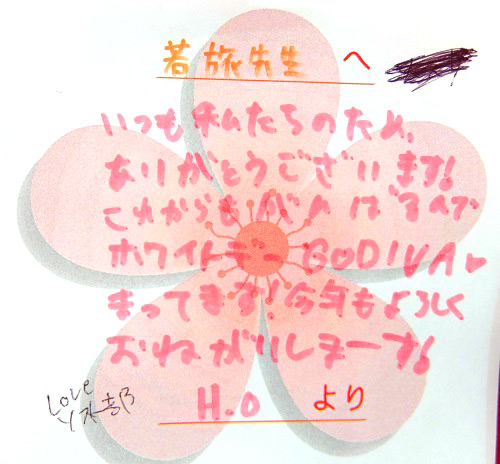 若旅先生 へ
いつも私たちのため、
ありがとうございます!
これからもがんばるんで
ホワイトデーGODIVA♥
まってます!今年もよろしく
おねがいしまーす!
H.O より
Love
ソ木部